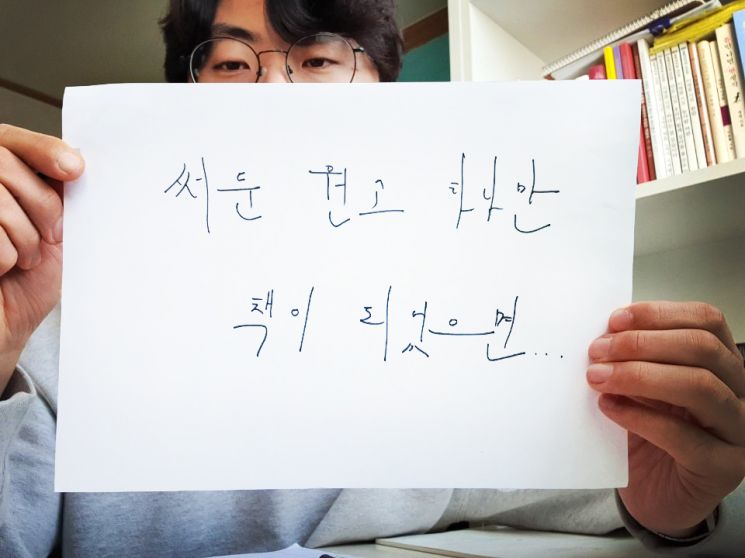 써둔 원고 하나만
책이 되었으면...